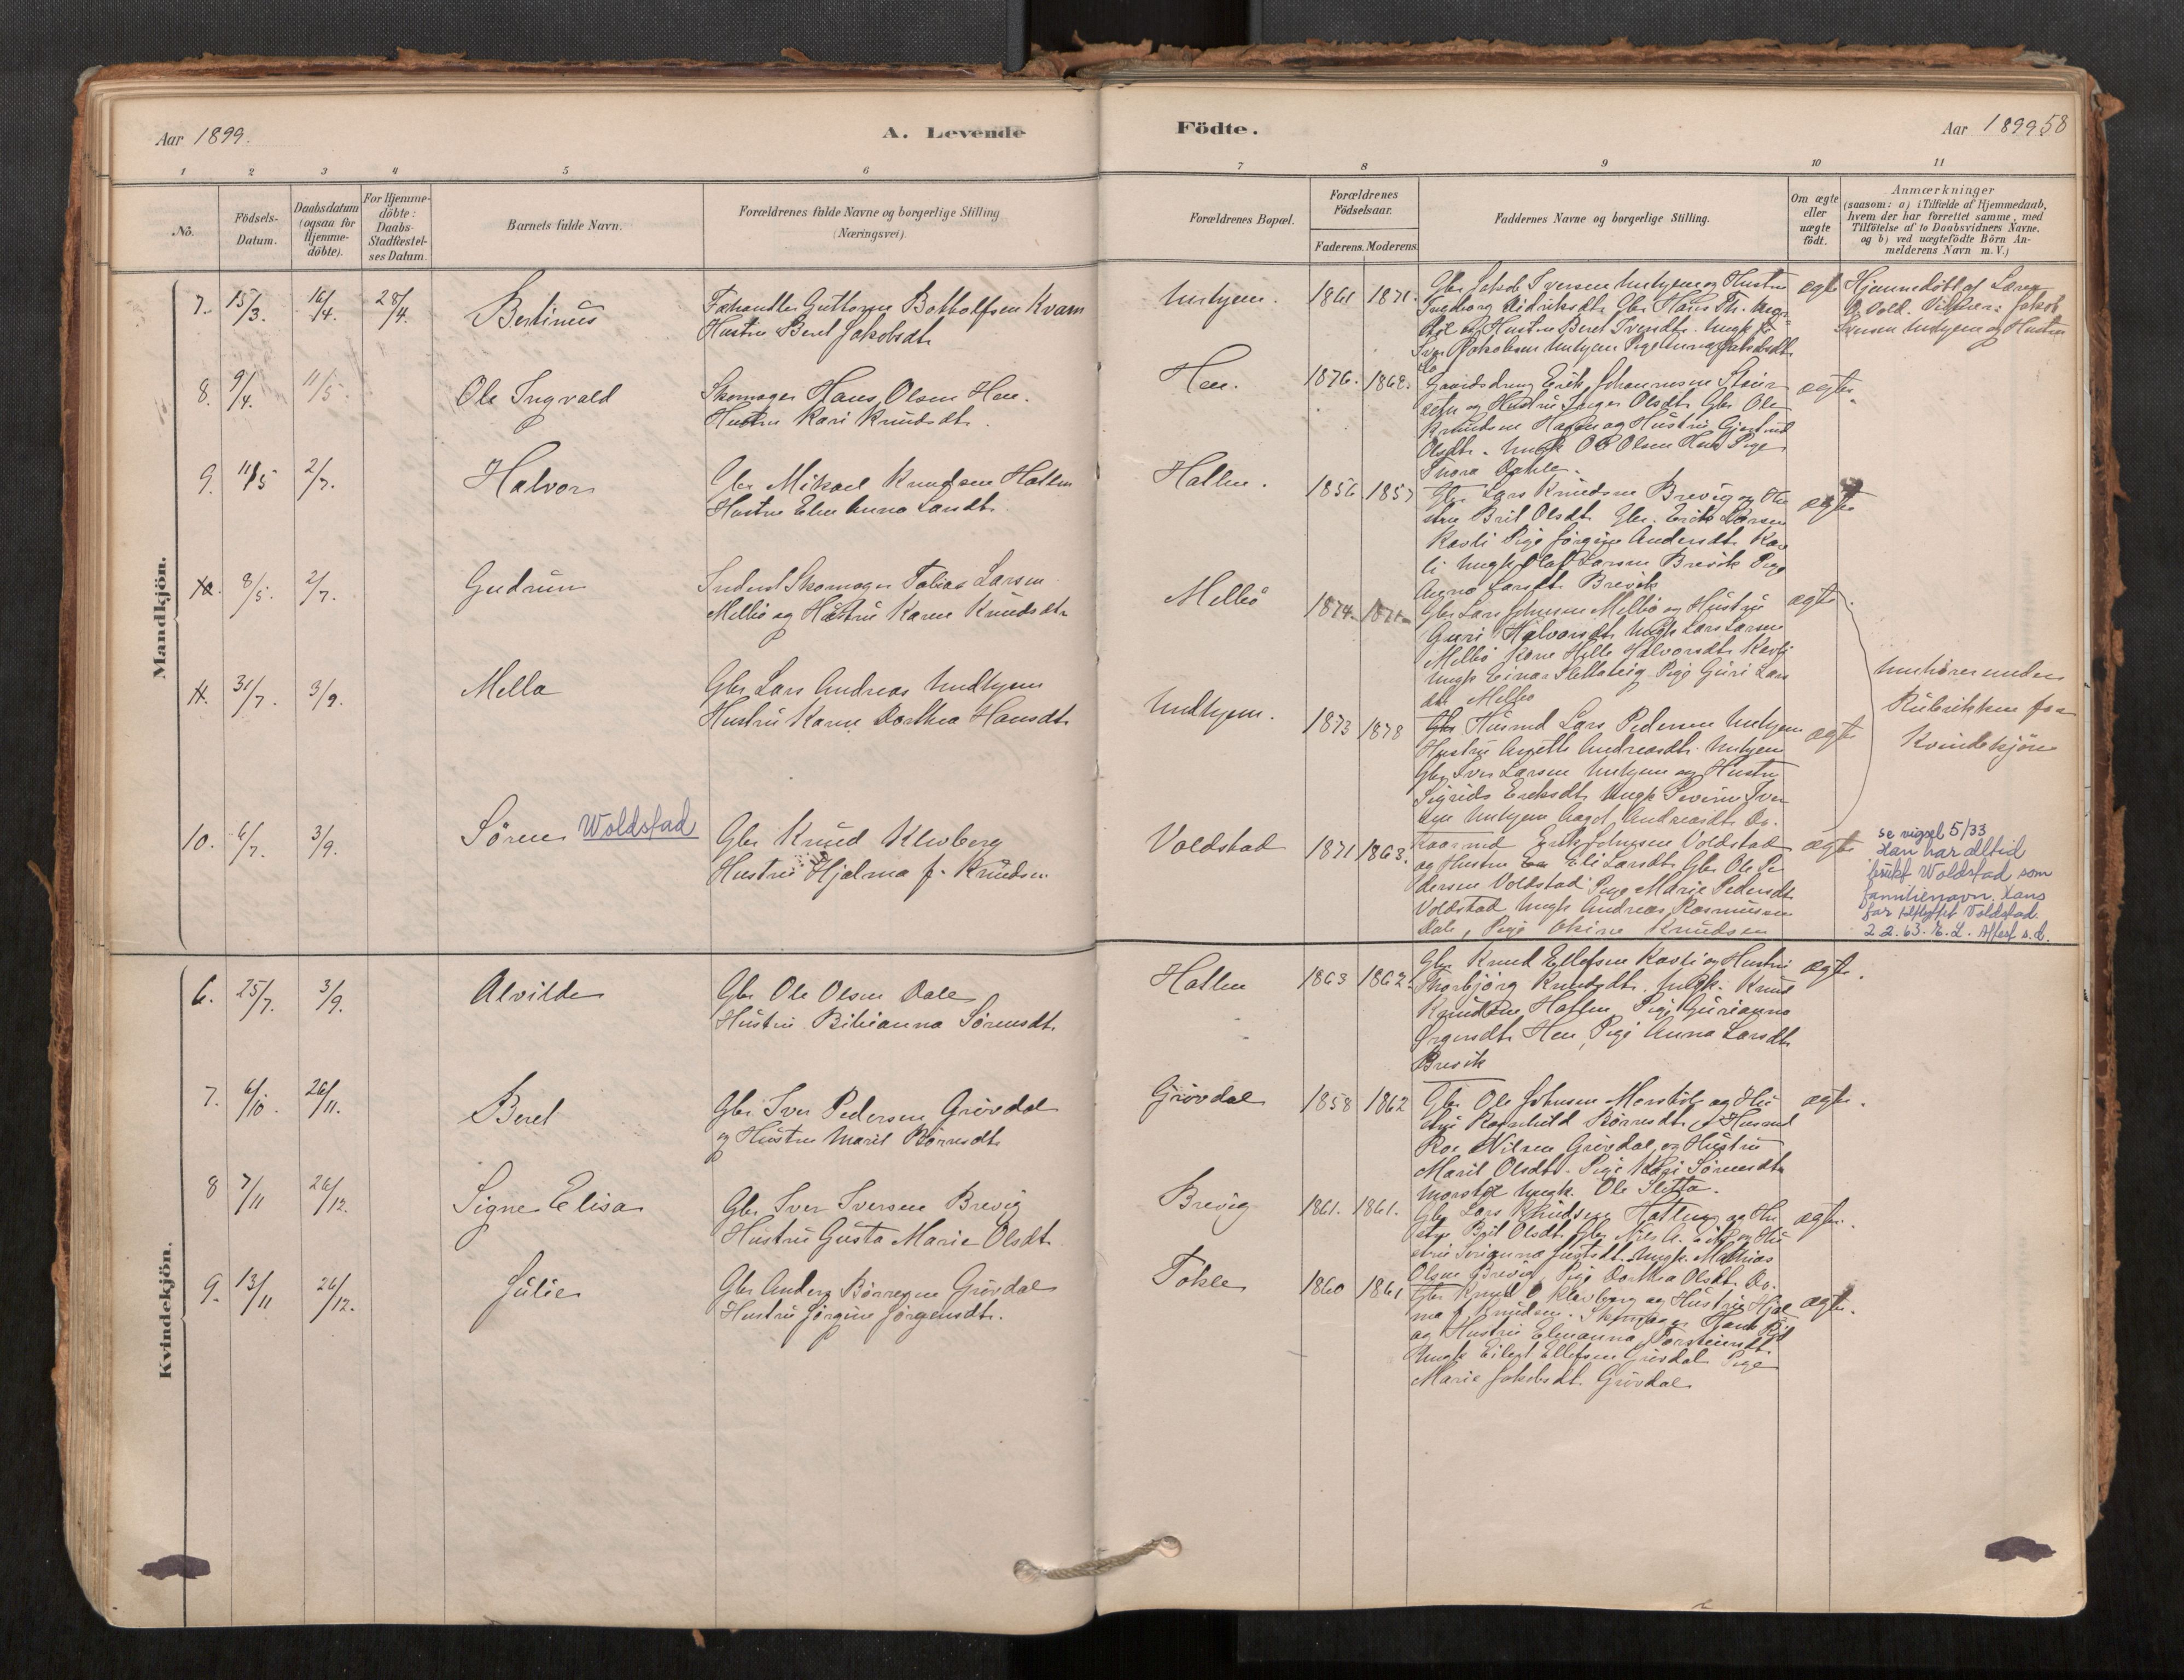 Aar 1899.
A. Levende
Födte.
Aar 1899 58
1 2 3 4 5 6 7 8 9 10 11
No.
Födsels-Datum.
Daabsdatum (ogsaa for Hjemme-döbte).
For Hjemme-döbte: Daabs-Stadfæstel-ses Datum.
Barnets fulde Navn.
Forældrenes fulde Navne og borgerlige Stilling (Næringsvei).
Forældrenes Bopæl.
Forældrenes Födselsaar.
Faderens. Moderens.
Faddernes Navne og borgerlige Stilling.
Om ægte eller uægte födt.
Anmærkninger
(saasom: a) i Tilfælde af Hjemmedaab,
hvem der har forrettet samme, med
Tilföielse af to Daabsvidners Navne.
og b) ved uægtefödte Börn An-
melderens Navn m.V.)
Mandkjön.
7. 15/3. 16/4. 28/4. Bertinus
Guttorm Botholfsen Kvam
Hustru Beret Jakobsdt.
1861 1871.
Gbr Jakob Iversen og Hustru
ægte
Hjemmedöbt af Lærer
Vold. Vidner: Jakob
Iversen og Hustru
8. 9/4. 11/5. Ole Ingvald
Skomager Hans Olsen Hen.
Hustru Kari Knudsdt.
Hen. 1876. 1868.
Erik Johannesen
og Hustru Inger Olsdt. Gbr Ole
Knudsen Hagen og Hustru Gjertrud
Olsdt. Ungk Ole Olsen Hen Pige
ægte
9. 11/5 2/7. Halvor
Gbr Mikael Knudsen Hatlen
Hustru Elen Anna Larsdt.
Hatlen. 1856 1857
Gbr Lars Knudsen Brevig og Hu
stru Brit Olsdt. Gbr. Erik Larsen
Kavli Pige Jørgine Andersdt. Kav
li Ungk Olaf Larsen Brevik Pige
Anna Larsdt. Brevik
ægte
10. 8/5. 2/7. Gudrun
Inderst Skomager Tobias Larsen
Melbö og Hustru Karen Knudsdt.
Melbö 1874. 1871
Gbr Lars Johnsen Melbö og Hustru
Guri Halvorsdt. Ungk Lars Larsen
Melbö Kone Helle Halvorsdt. Kavli
Ungk Einar Slettahjg Pige Guri Lars
dt. Melbö
ægte
11. 31/7. 3/9. Mella
Gbr Lars Andreas Undhjem
Hustru Karen Dorthea Hansdt.
Undhjem. 1873 1878
Husmd Lars Pedersen
Hustru Anette Andreasdt.
Gbr Iver Larsen og Hustru
Sigrids Eriksdt. Ungk
Andreasdt. Do.
ægte
henhörer under
Rubrikken for
Kvindekjön
10. 6/7. 3/9. Sören Woldstad
Gbr Knud Klevberg
Hustru Hjalma f. Knudsen
Voldstad 1871 1863.
Erik Johnsen Voldstad
og Hustru Eli Larsdt. Gbr Ole Pe
dersen Voldstad Pige Marie Pedersdt.
Voldstad Ungk Andreas Rasmussen
Dale, Pige Knudsen
ægte
se vigsel 5/33
Han har alltid
brukt Woldstad som
familienavn. Hans
far tilflyttet Voldstad.
2.2.63. E.L. Attest s.d.
Kvindekjön.
6. 25/7. 3/9. Alvilde
Gbr Ole Olsen Dale
Hustru Birianna Sörensdt.
Hatlen 1863 1862.
Gbr Knud Ellefsen Kavli og Hustru
Thorbjörg Knudsdt. Ungk. Knud
Knudsen Hatlen Pige Gurianna
Hen, Pige Anna Larsdt.
Brevik
ægte.
7. 6/10. 26/11. Beret
Gbr. Iver Pedersen Grövdal
og Hustru Marit Börresdt.
Grövdal 1858 1862
Gbr Ole Johnsen Morstöl og Hu
stru Ragnhild Börresdt. Husmd
Roe Nilsen Grövdal og Hustru
Marit Olsdt. Pige Kari Sörensdt.
Morstöl Ungk. Ole Sletta.
ægte.
8 7/11 26/12. Signe Elisa
Gbr Iver Iversen Brevig
Hustru Gusta Marie Olsdt.
Brevig 1861. 1861.
Gbr Lars Knudsen Hatlen og Hu
stru Brit Olsdt. Gbr Nils og Hu
stru Ungk. Mathias
Olsen Brevig, Pige Dorthea Olsdt. Do.
ægte.
9. 13/11 26/12. Julie
Gbr Anders Börresen Grövdal
Hustru Jörgine Jörgensdt.
Tokle 1860 1861
Gbr Knud Klevberg og Hustru Hjal
ma f. Knudsen. Skomager Hans
og Hustru Elenanna Torsteinsdt.
Ungk Eilert Ellefsen Grövdal Pige
Marie Jakobsdt. Grövdal
ægte.